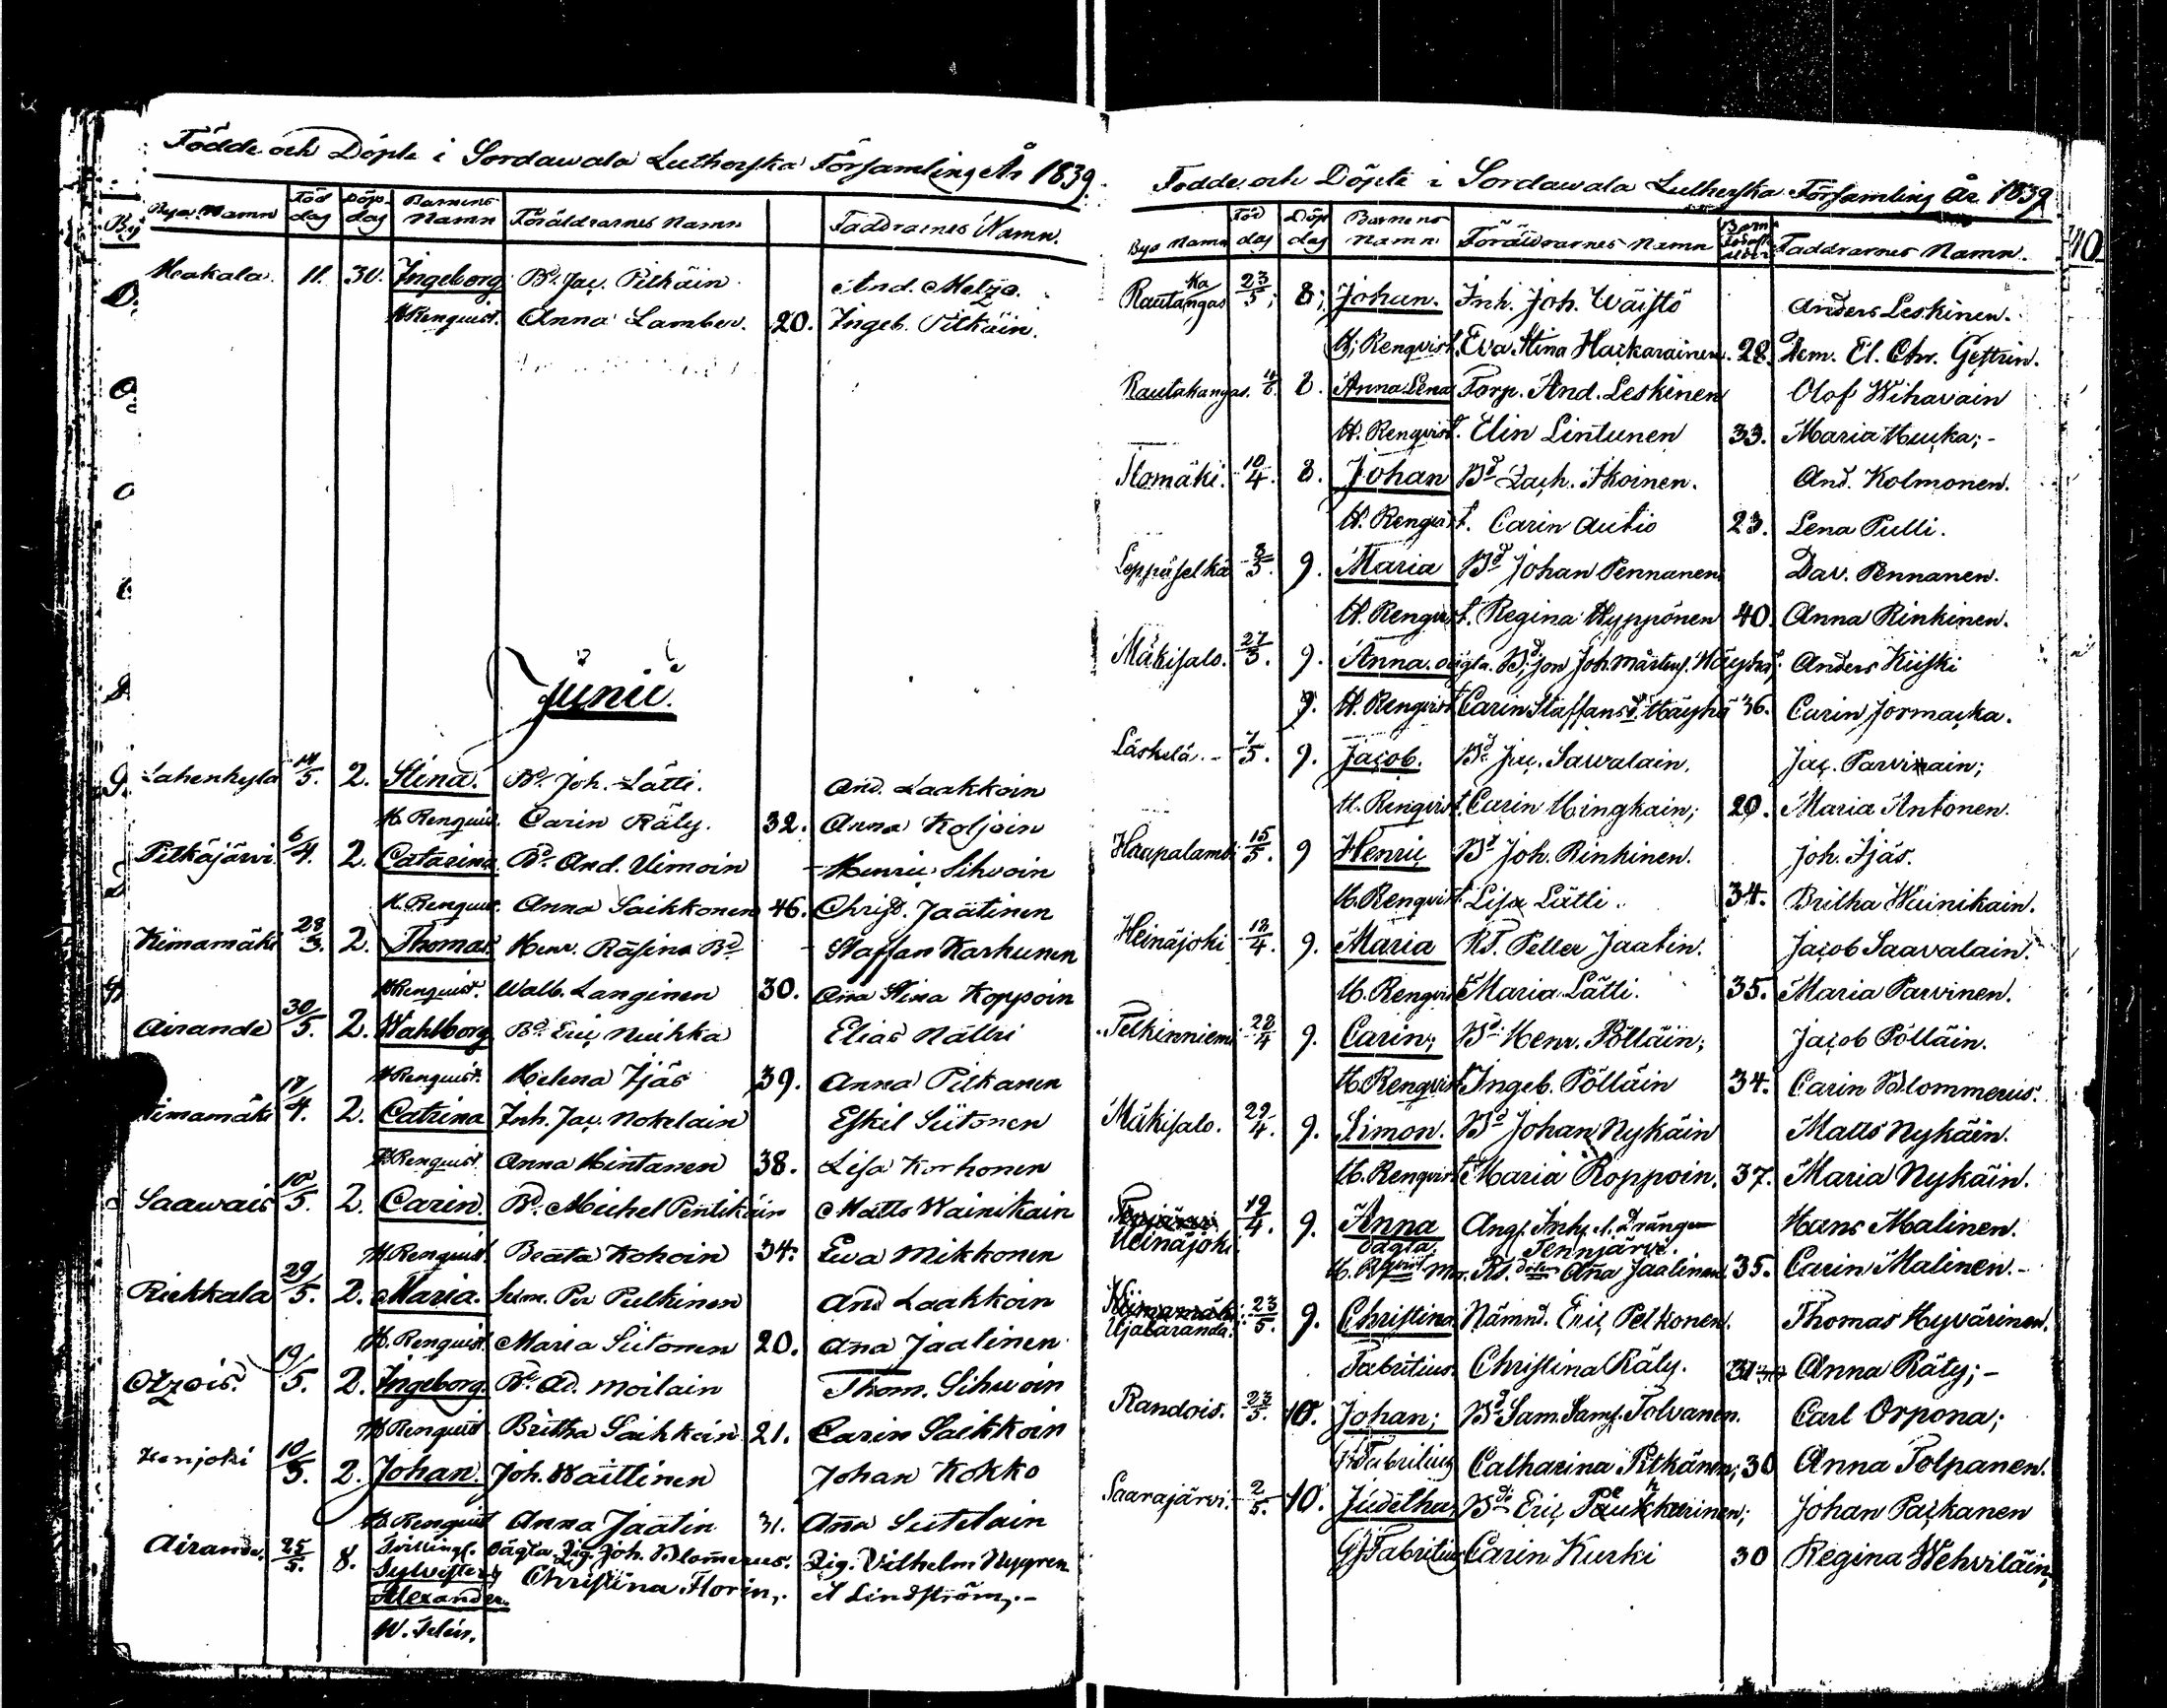 Födde och Döpte i Sordawala Lutherska Församling År 1839.
Byа Namn Föd dag Döp dag Barnens Namn Föräldrarnes Namn Faddrarnes Namn.
Haakala. 11. 30. Ingeborg Bd. Jac. Pitkäin And. Melza.
H. Renquist. Anna Lamber. 20. Ingeb. Pitkäin.
Junii.
Lahenkylä 14/5. 2. Stina. Bd. Joh. Lätti. And. Laakkoin
H. Renquist. Carin Räty. 32. Anna Koljoin
Pitkäjärvi. 6/4. 2. Catarina Bd. And. Uimoin Henric Sihvoin
H. Renquist. Anna Saikkonen 46. Christ. Jaatinen
Kimamäki 28/3. 2. Thomas. Henr. Räsine Bd Staffan Karhunen
H. Renquist. Walb. Langinen 30. Ana Stina Koppoin
Airande 30/5. 2. Wahlborg Bd. Eric Nuikka Elias Nätki
H. Renquist. Helena Ijäs 39. Anna Pitkanen
Kimamäki 17/4. 2. Catrina Inh. Jac. Nokelain Eskil Siitonen
H. Renquist. Anna Hintanen 38. Lisa Korhonen
Saawais 10/5. 2. Carin. Bd. Michel Pentikäin Matts Wainikain
H. Renquist. Beata Kohoin 34. Ewa Mikkonen
Riekkala 29/5. 2. Maria. Pr Pulkinen And Laakkoin
H. Renquist. Maria Siitonen 20. Ana Jaalinen
Otzois. 19/5. 2. Ingeborg. Bd. Ad. Moilain Thom. Sihvoin
H Renquist Britha Saikkoin 21. Carin Saikkoin
Henjoki 10/5. 2. Johan. Joh. Waittinen Johan Kokko
H. Renquist Anna Jäätin 31. Ana Siitelain
Airande. 25/5. 8. Tvillingf. oägta. Pig. Joh. Blomerus. Pig. Vilhelm Nygren
Sylvester Christina Florin,. A Lindström,.-
Alexander.
Födde och Döpte i Sordawala Lutherska Församling År 1839
Bya Namn Föd dag Döp dag Barnens Namn Föräldrarnes Namn Faddrarnes Namn.
Rautakangas 23/5; 8; Johan. Inh. Joh. Wäistö Anders Leskinen.
H; Renqvist. Eva Stina Haikarainen. 28. Dem. El. Chr. Gestrin.
Rautakangas. 8. Anna Lena Torp. And. Leskinen Olof Wihavain
H. Renqvist. Elin Lintunen 33. Maria Kucka;-
Ilomäki. 10/4. 8. Johan Bd Zach. Ikoinen. And. Kolmonen.
H. Renqvist. Carin Autio 23. Lena Pulli.
Leppäselkä 3/3. 9. Maria Bd Johan Pennanen Dav. Pennanen.
H. Renqvist. Regina Hyppönen 40. Anna Rinkinen.
Mäkisalo. 27/3. 9. Anna. oägta. Bd; son Joh. Mårtens. Häyhä; Anders Kiiski
9. H. Renqvist Carin Staffansd. Häyhä 36. Carin Jormacka.
Läskelä.- 7/5. 9. Jacob. Bd Jac. Sawalain. Jac. Parviain;
H. Renqvist. Carin Hingkain; 20. Maria Antonen.
Haapalamb. 15/5. 9 Henric Bd Joh. Rinkinen. Joh. Ijäs.
H. Renqvist Lisa Lätti. 34. Britha Wäinikain.
Heinäjoki 12/4. 9. Maria RS. Petter Jaatin. Jacob Saavalain.
H. Renqvist Maria Lätti. 35. Maria Parvinen.
Telkinniem. 28/4 9. Carin; Bd Henr. Pölläin; Jacob Pölläin.
H. Renqvist Ingeb. Pölläin 34. Carin Blommerus.
Mäkisalo. 29/4. 9. Simon. Bd Johan Nykäin Matts Nykäin.
H. Renqvist Maria Roppoin. 37. Maria Nykäin.
Heinäjoki. 19/4. 9. Anna Ang. Inh. d. Drängen Hans Malinen.
oägta. Tennjärvi.
Ana Jaalinen 35. Carin Malinen.-
Ujalaranda. 23/5. 9. Christina Nämnd. Eric Petkonen. Thomas Hyvärinen.
Fabritius. Christina Räty. 31 Anna Räty;-
Randois. 23/5. 10. Johan; Bd Sam. Sams. Tolvanen. Carl Orpona;
Fabritius Catharina Pitkänen; 30 Anna Tolpanen.
Saarajärvi. 2/5. 10. Judetha, Bd Eric Johan Packanen
GJ Fabritius Carin Kurki 30 Regina Wehviläin;